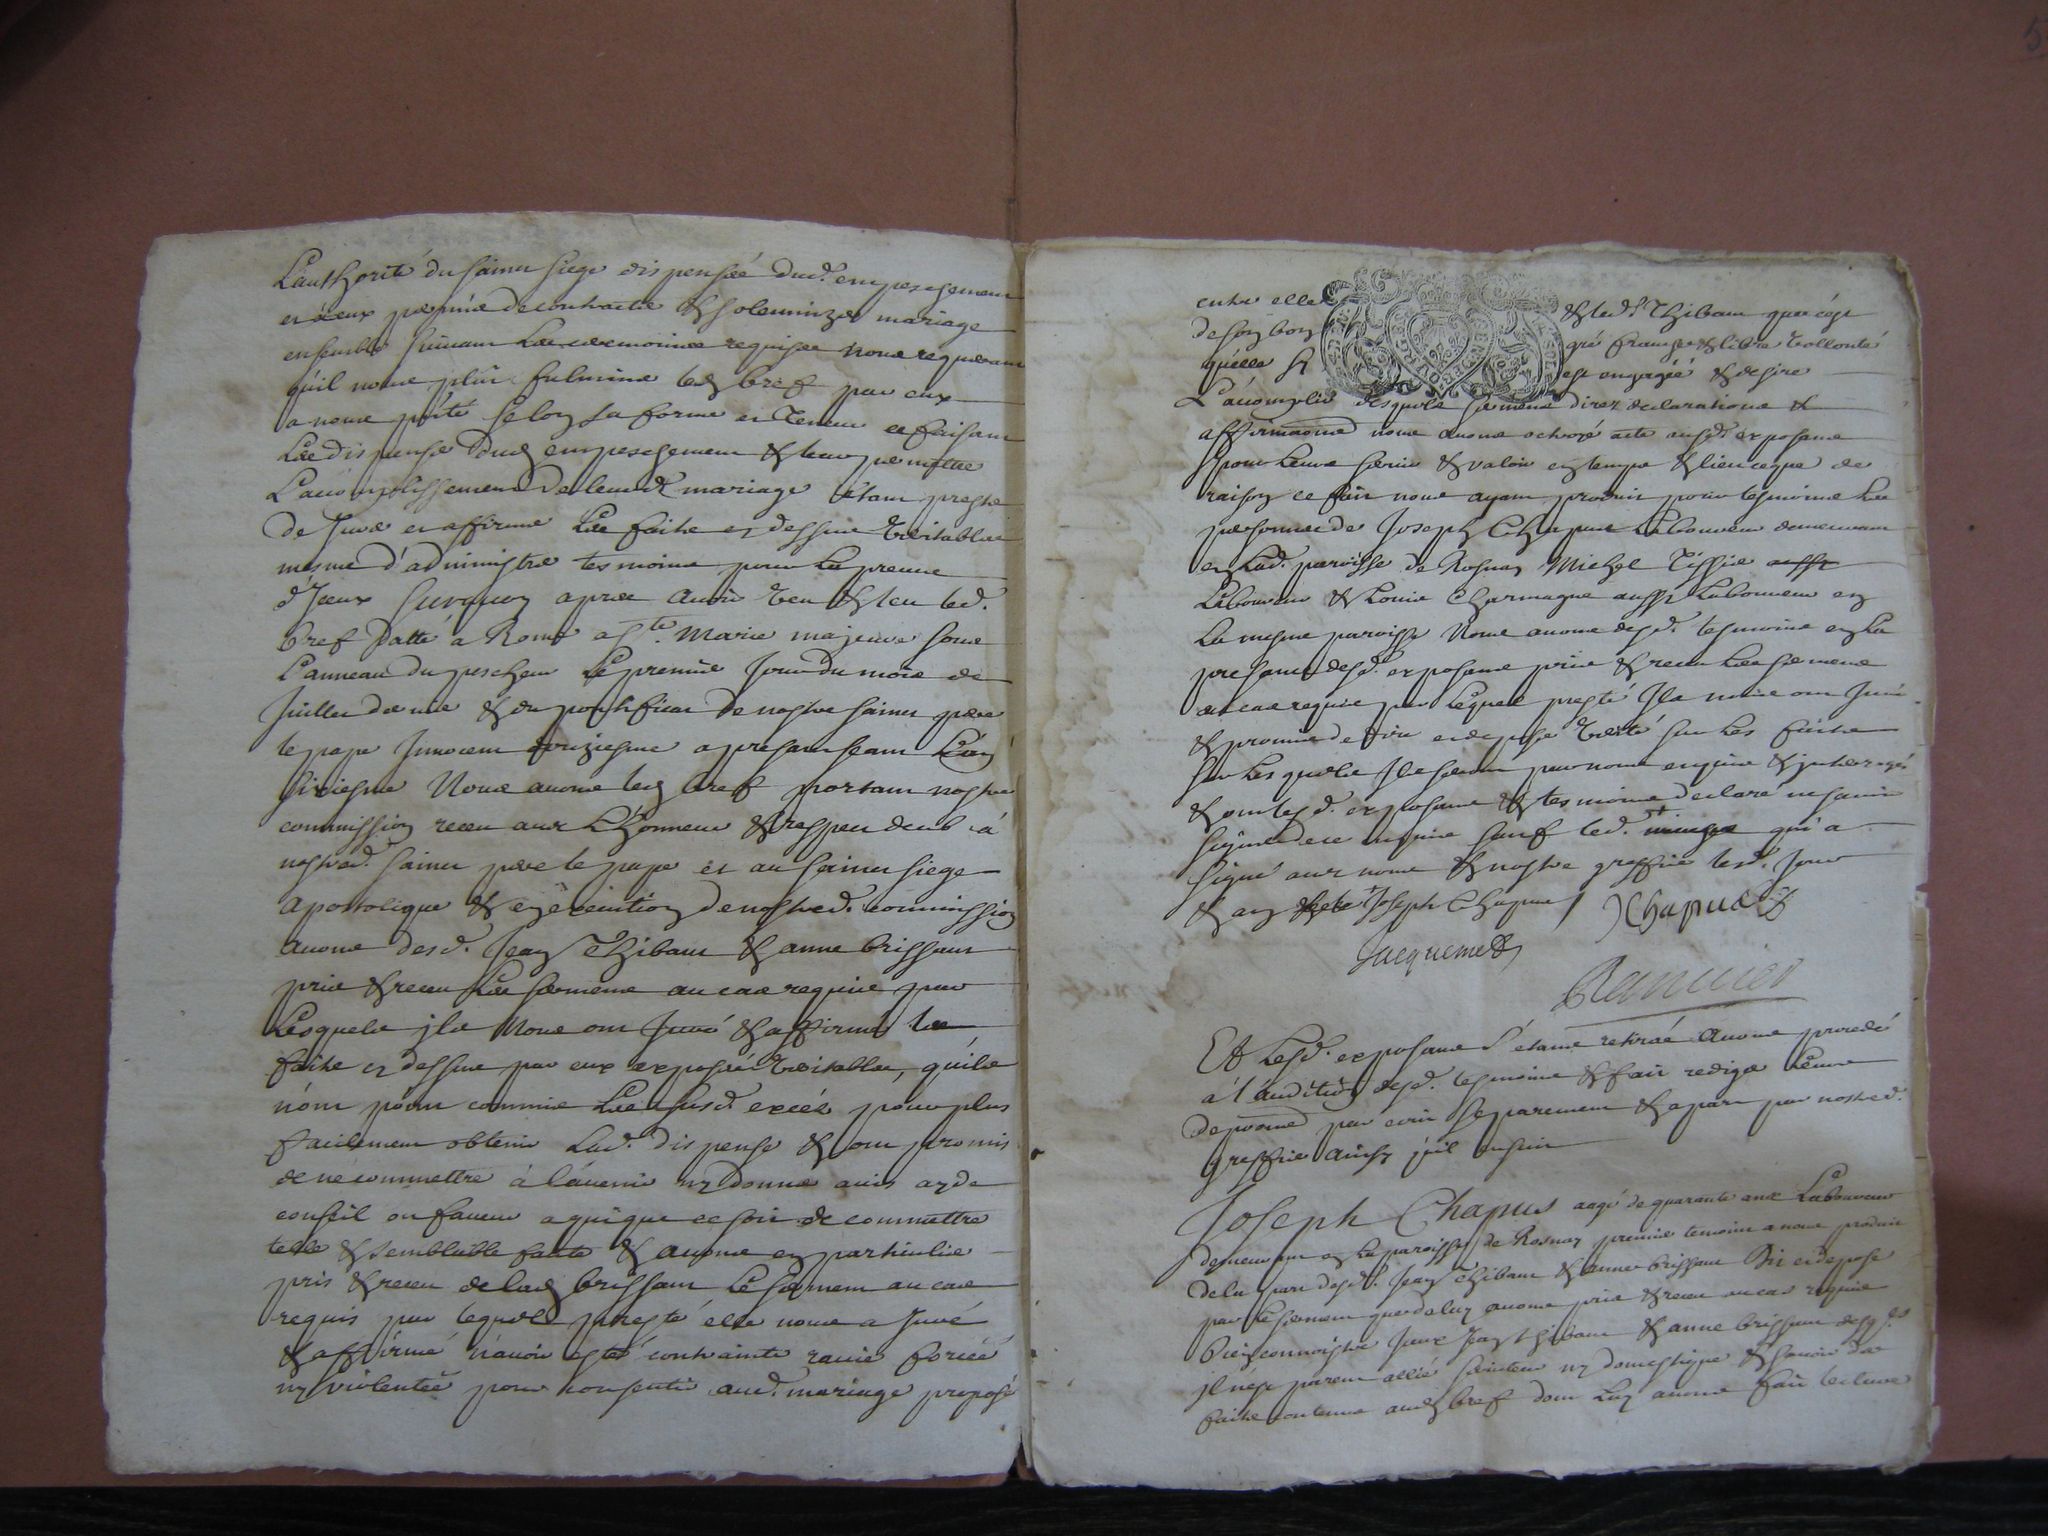 L'authorité du sainct siege dispensée dud. empeschement
et à eux permis de contracter & solemnizer mariage
ensemble suivant les ceremonies requises nous requerans
qu'il nous plût fulminer led bref par eux
a nous pñté selon sa forme et teneur ce faisant
Les dispenser dud empeschement & leur permettre
L'accomplissement de leurd. mariage estans prests
de Jurer et affirmer Les faits cy dessus veritables
mesme d'administrer tesmoins pour La preuve
d'Jceux Surquoy apres avoir veu & leu led.
bref datté a Rome a Ste. Marie majeure sous
L'anneau du pescheur Le premier Jour du mois de
Juillet dernier & du pontificat de nostre sainct pere
le pape Innocent douziesme a present seant L'an
sixiesme Nous avons led bref portant nostre
commission receu avec L'honneur & respect deub à
nostred. sainct pere le pape et au sainct siege
apostolique & en execution de nostred. commission
avons desd. Jean Thibaut & anne brissaut
pris & receu Les sermens au cas requis par
Lesquels jls Nous ont Juré & affirmé les
faits cy dessus par eux exposés veritables, qu'ils
n'ont point commis Les susd. excés pour plus
facilement obtenir Lad. dispense & ont promis
de n'e commettre à l'avenir ny donner avis ayde
conseil ou faveur a quique ce soit de commettre
telle & semblable faute & avons en particulier
pris & receu de lad brissaut Le serment au cas
requis par lequel presté elle nous a Juré
& affirmé n'avoir esté contrainte ravie forcée
ny violentée pour consentir aud. mariage proposé
entre elle & led. Thibaut que c'est
de son bon gré franche & libre vollonté
qu'elle s'y est engagée & desire
L'accomplir desquels sermens dires declarations &
affirmaons nous avons octroyé acte ausd. exposans
pour Leurs servir & valoir en temps & lieu ce que de
raison ce fait nous ayans produit pour tesmoins Les
personnes de Joseph Chapus Laboureur demeurant
en Lad. paroisse de Rosnay Michel Tissier aussy
Laboureur & Louis Charmagne aussy Laboureur en
La mesme paroisse Nous avons desd. tesmoins en La
presence desd. exposans pris & receu Les sermens
au cas requis par Lequel presté Jls nous ont Juré
& promis de dire et deposer verité sur Les faits
sur Lesquels Jls seront par nous enquis & jnterrogés
& ont lesd. exposans & tesmoins declaré ne sçavoir
signer de ce enquis sauf led. qui a
signé avec nous & nostre greffier lesd. Jour
& an Joseph Chapus / JChapus
Jacquemet
Et Lesd. exposans s'étans retirés avons procedé
à l'audition desd. tesmoins & fait rediger Leurs
depositions par ecrit separement & apart par nostred.
greffier ainsy qu'il ensuit
Joseph Chapus aagé de quarante ans Laboureur
demeurant en La paroisse de Rosnay premier temoins a nous produit
de la part desd. Jean Thibaut & anne brissaut Dit et depose
par Le serment que de luy avons pris & receu au cas requis
bien connoistre Jceux Jean thibaut & anne brissaut desqls
jl n'est parent allié serviteur ny domestique & sçavoir des
faits contenus aud bref dont Luy avons fait lecture